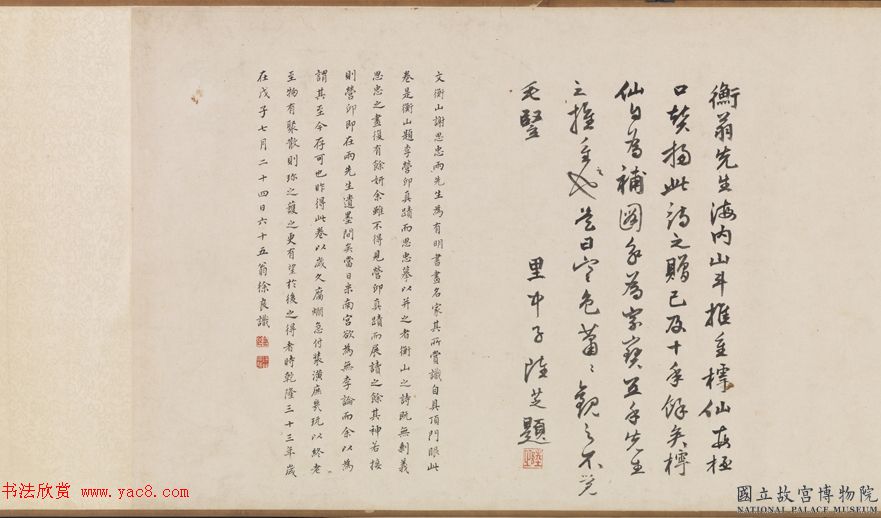 衡翁先生海內山斗推重樗仙每極
口獎揚此詩之贈已及十年餘矣樗
仙自為補圖永為家寶五年先生
之推重也是日空色蕭〻觀之不覺
毛豎
里中子陸芝題
文衡山謝思忠兩先生為有明書畫名家其所賞識自具頂門眼此
卷是衡山題李營邱真蹟而思忠摹以并之者衡山之詩既無剩義
思忠之畫復有餘妍余雖不得見營邱真蹟而展讀之餘其神若接
則營邱即在兩先生遺墨間矣當日米南宮欲為無李論而余以為
謂其至今存可也昨得此卷以歲久腐爛急付裝潢庶幾玩以終老
至物有聚散則珍之護之更有望於後之得者時乾隆三十三年歲
在戊子七月二十四日六十五翁徐良識
書法欣賞 www.yac8.com
國立故宮博物院
NATIONAL PALACE MUSEUM